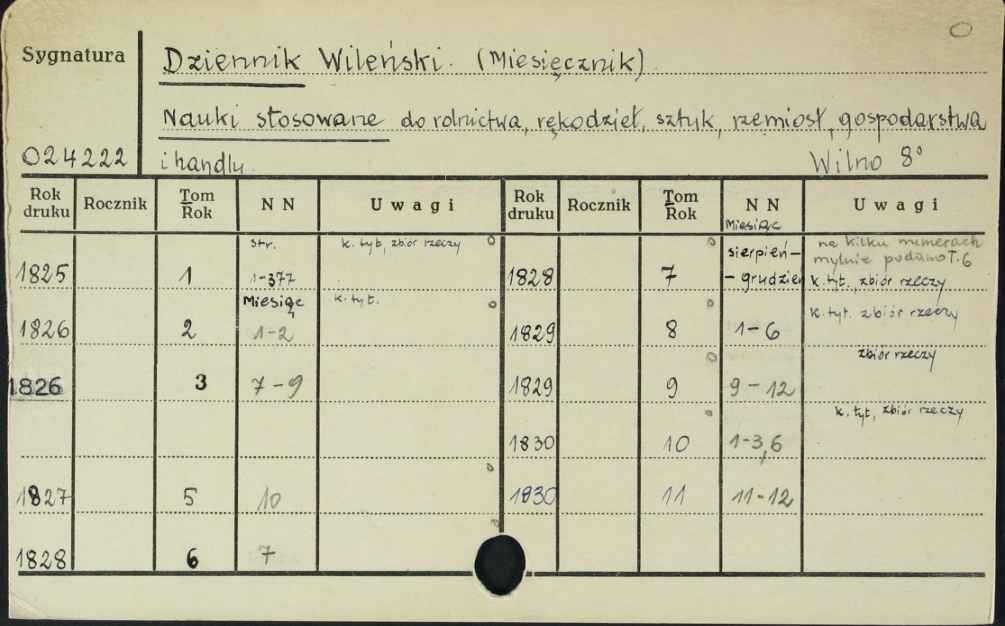 Sygnatura
Dziennik Wileński. (Miesięcznik)
Nauki stosowane do rolnictwa, rękodzieł, sztuk, rzemiosł, gospodarstwa
024222 i handlu. Wilno 8°
Rok druku Rocznik Tom Rok NN Uwagi Rok druku Rocznik Tom Rok NN Uwagi
1825 1 str. 1-377 k. tyt, zbiór rzeczy
1826 2 Miesiąc 1-2 k. tyt.
1826 3 7-9
1827 5 10
1828 6 7
1828 7 Miesiąc sierpień- -grudzień na kilku numerach mylnie podano T.6 k. tyt., zbiór rzeczy
1829 8 1-6 k. tyt. zbiór rzeczy
1829 9 9-12 zbiór rzeczy
1830 10 1-3,6 k. tyt, zbiór rzeczy
1830 11 11-12